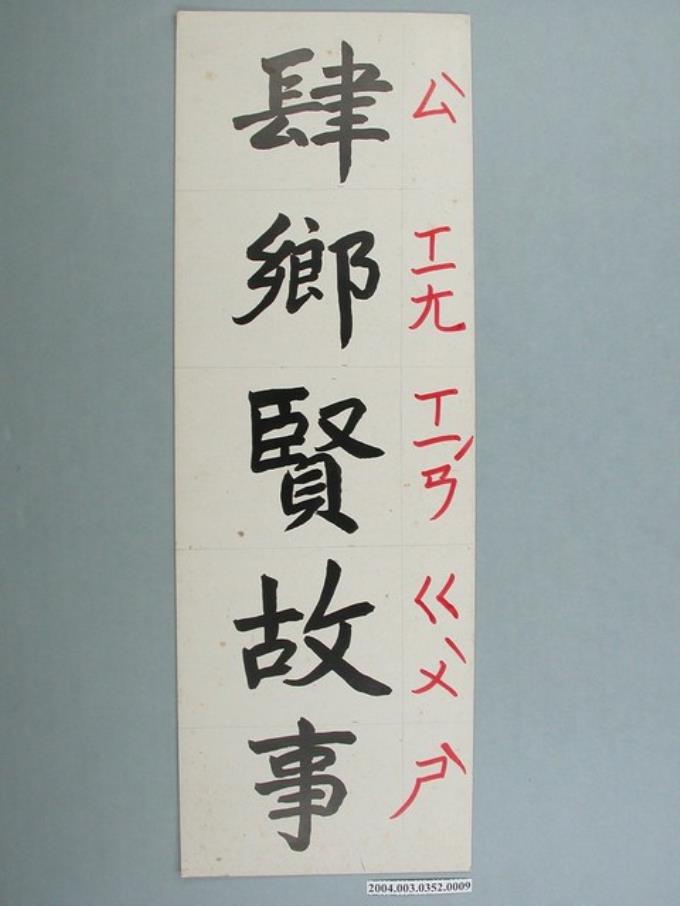 肆鄉賢故事
ㄙˋ ㄒㄧㄤ ㄒㄧㄢˊ ㄍㄨˋ ㄕˋ
2004.003.0352.0009